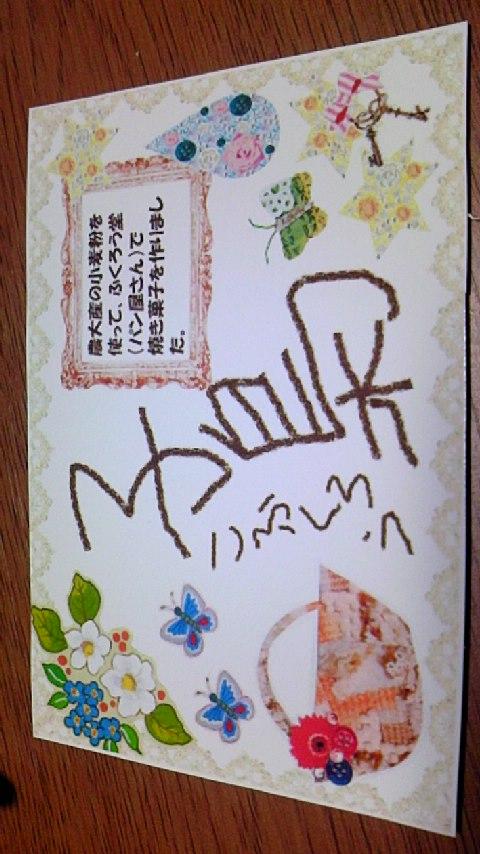 農大産の小麦粉を
使って、ふくろう堂
(パン屋さん)で
焼き菓子を作りまし
た。
子梟
こぶくろう